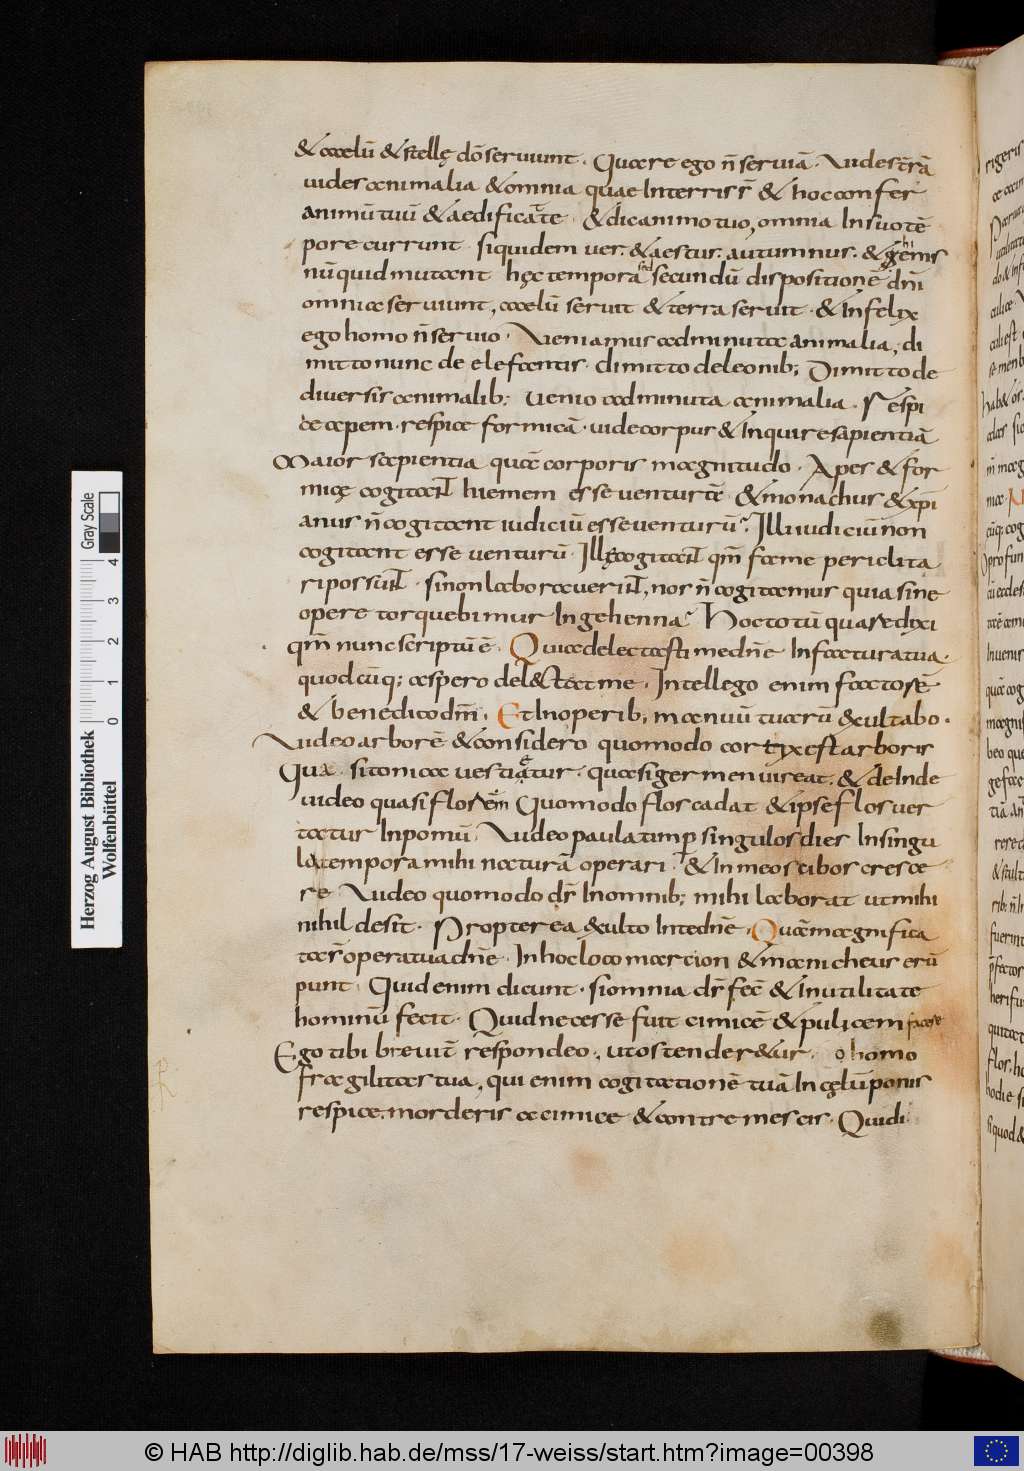 & caelū & stellę dō serviunt. Quare ego n̄ serviā. Vides t̄rā
vides animalia & omnia quae in terris s̄ & hoc confer
animū tuū & aedificate. & dic animo tuo, omnia in suo tē
pore currunt siquidem ver. & aestus. autumnus. & hiems
nūquid mutant hęc tempora sed secundū dispositionē dn̄i
omnia serviunt, caelū servit & terra servit. & infelix
ego homo n̄ servio. Veniamus ad minuta animalia, di
mitto nunc de elefantis. dimitto de leonib; Dimitto de
diversis animalib; Venio ad minuta animalia. Respi
ce apem. respice formicā. vide corpus & inquire sapientiā
Maior sapientia quā corporis magnitudo. Apes & for
micę cogitant hiemem esse venturā & monachus & xp̄i
anus n̄ cogitant iudiciū esse venturū. Illi iudiciū non
cogitant esse venturū. Illę cogitant qm̄ fame periclita
ri possunt. si non laboraverint, nos n̄ cogitamus quia sine
opere torquebimur in gehenna. Hoc totū quare dixi
qm̄ nunc scriptū ē. Quia delectasti me dn̄e in factura tua.
quodcūq; aspero delectat me. Intellego enim factorē
& benedico dm̄. Et in operib; manuū tuarū exultabo.
Video arborē & considero quomodo cortix est arboris
Quasi tonica vestiatur. quasi germen vireat. & deinde
video quasi florem Quomodo flos cadat & ipse flos ver
tatur in pomū. Video paulatim p̱ singulos dies in singu
la tempora mihi naturā operari. & in meos cibos cresce
re Video quomodo ds̄ in omnib; mihi laborat ut mihi
nihil desit. Propterea exulto in te dn̄e. Quā magnifica
ta s̄ opera tua dn̄e. In hoc loco marcion & manicheus erū
punt. Quid enim dicunt. si omnia ds̄ fec̄ & in utilitate
hominū fecit. Quid necesse fuit cimicē & pulicem facere
Ego tibi brevit̄ respondeo. ut ostenderetur. o homo
fragilitas tua, qui enim cogitationē tuā in cęlū ponis
respice. morderis a cimice & contremescis. Quid i
Herzog August Bibliothek
Wolfenbüttel
0 1 2 3 4
Gray Scale
© HAB http://diglib.hab.de/mss/17-weiss/start.htm?image=00398